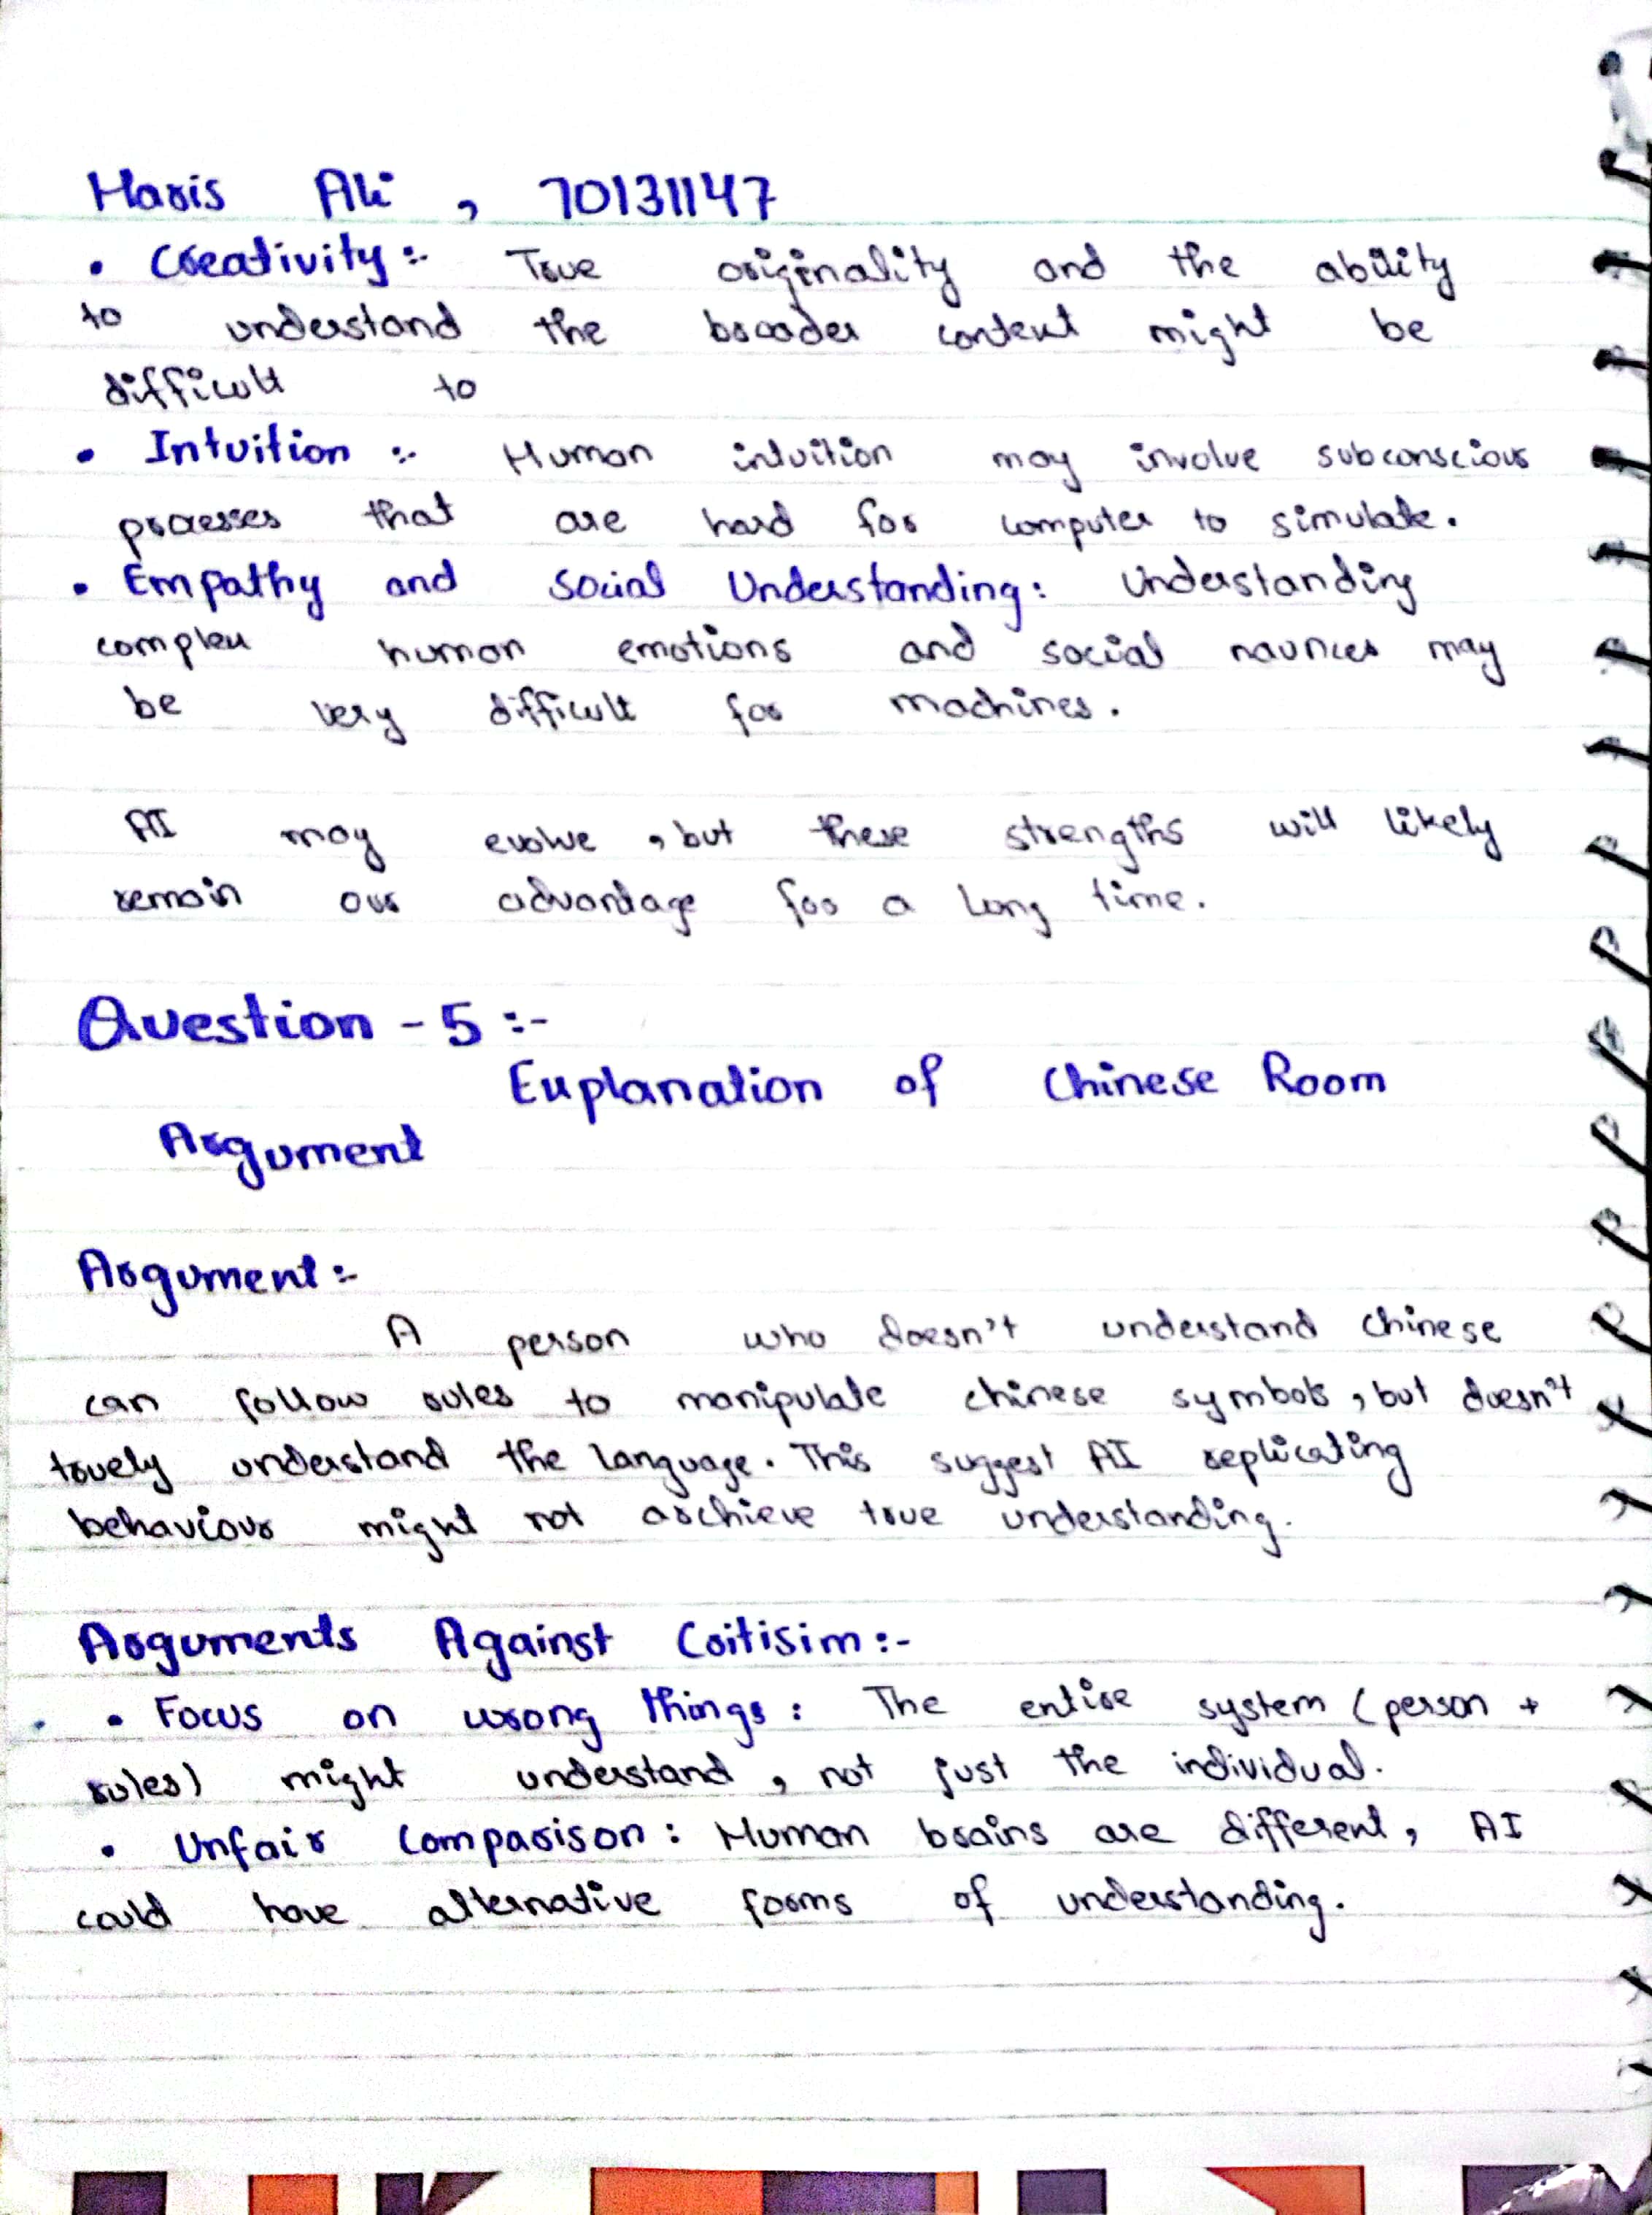 Haris Ali , 70131147
• Creativity :- True originality and the ability
to understand the broader context might be
difficult to
• Intuition :- Human intuition may involve subconscious
processes that are hard for computer to simulate.
• Empathy and Social Understanding : Understanding
complex human emotions and social naunces may
be very difficult for machines.
AI may evolve , but these strengths will likely
remain our advantage for a long time.
Question - 5 :-
Explanation of Chinese Room
Argument
Argument :-
A person who doesn't understand Chinese
can follow rules to manipulate chinese symbols , but doesn't
truely understand the language. This suggest AI replicating
behaviour might not archieve true understanding.
Arguments Against Critisim :-
• Focus on wrong things : The entire system (person +
rules) might understand , not just the individual.
• Unfair Comparison : Human brains are different, AI
could have alternative forms of understanding.